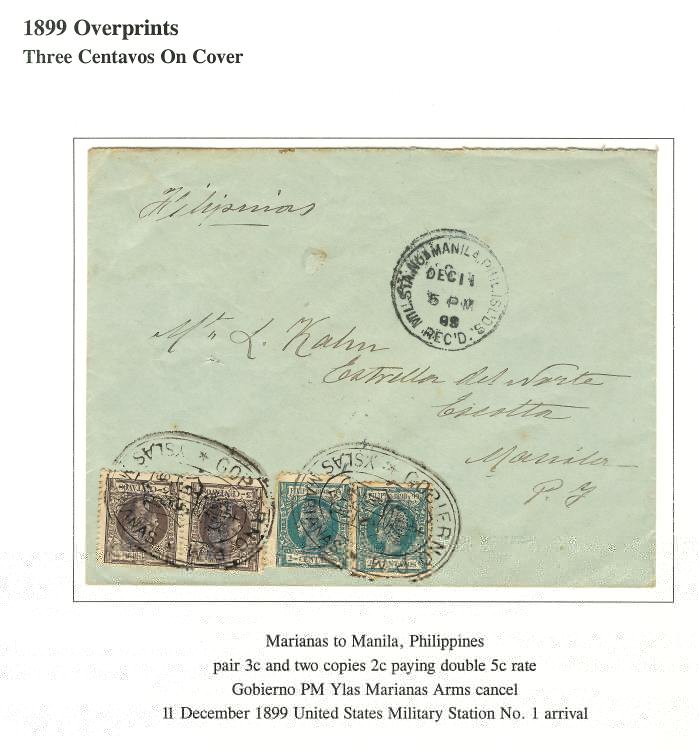 1899 Overprints
Three Centavos On Cover
Filipinas
MIL. STA. NO. 1 MANILA, PHIL. ISL'DS.
DEC 11
5 PM
REC'D.
Mr. L. Kahn
Estrella del Norte
Escolta
Manila
P. I.
YSLAS MARIANAS
GOBIERNO
YSLAS MARIANAS
GOBIERNO
Marianas to Manila, Philippines
pair 3c and two copies 2c paying double 5c rate
Gobierno PM Ylas Marianas Arms cancel
11 December 1899 United States Military Station No. 1 arrival